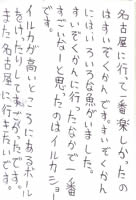 名古屋に行って一番楽しかったの
はすいぞくかんです。すいぞくかん
にはいろいろな魚がいました。
すいぞくかんに行ったなかで一番
すごいなーと思ったのはイルカショー
イルカが高いところにあるボール
をけったりしてすごかったです。
また名古屋に行きたいです。